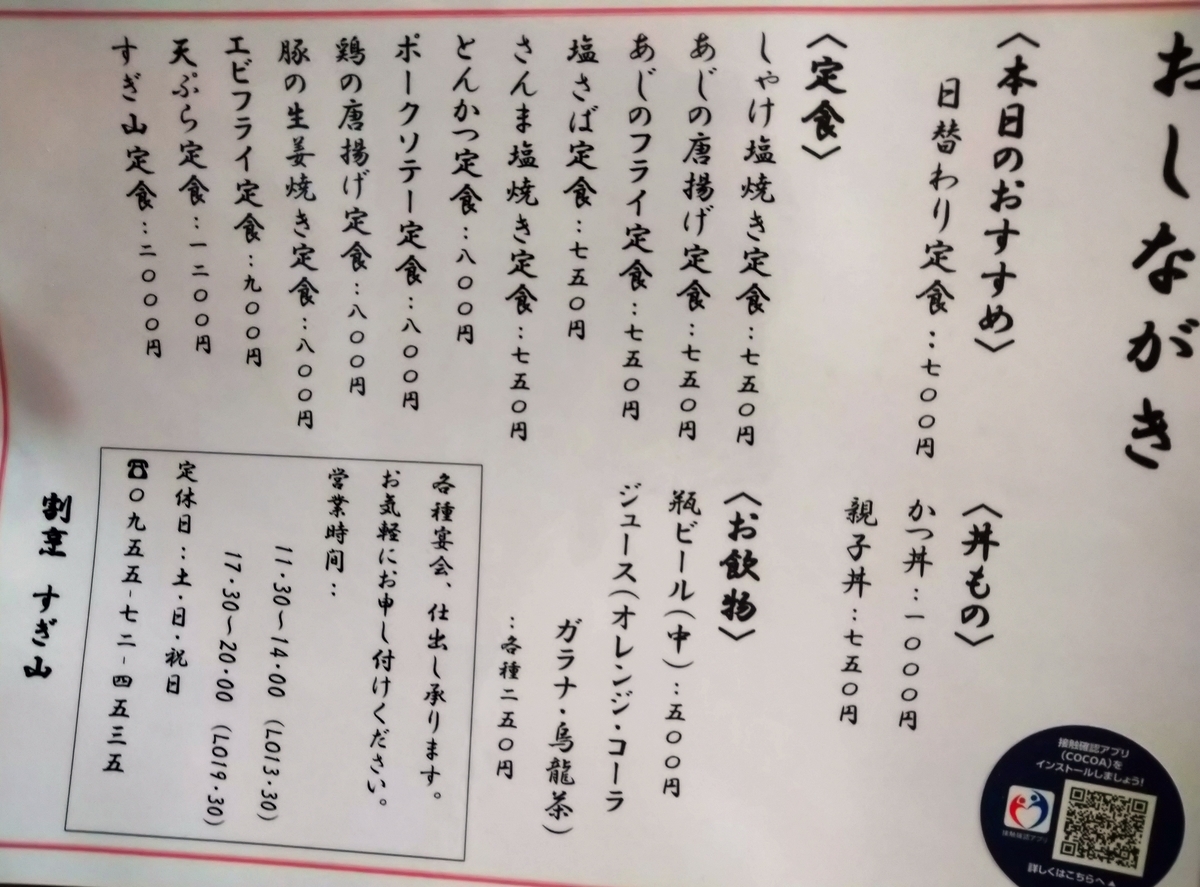 おしながき
〈本日のおすすめ〉
日替わり定食：七〇〇円
〈定食〉
しゃけ塩焼き定食：七五〇円
あじの唐揚げ定食：七五〇円
あじのフライ定食：七五〇円
塩さば定食：七五〇円
さんま塩焼き定食：七五〇円
とんかつ定食：八〇〇円
ポークソテー定食：八〇〇円
鶏の唐揚げ定食：八〇〇円
豚の生姜焼き定食：八〇〇円
エビフライ定食：九〇〇円
天ぷら定食：一二〇〇円
すぎ山定食：二〇〇〇円
〈丼もの〉
かつ丼：一〇〇〇円
親子丼：七五〇円
〈お飲物〉
瓶ビール（中）：五〇〇円
ジュース（オレンジ・コーラ
ガラナ・烏龍茶）
：各種二五〇円
各種宴会、仕出し承ります。
お気軽にお申し付けください。
営業時間：
11・30〜14・00（LO13・30）
17・30〜20・00（LO19・30）
定休日：土・日・祝日
☎〇九五五-七二-四五三五
割烹 すぎ山
接触確認アプリ
（COCOA）を
インストールしましょう！
接触確認アプリ
詳しくはこちらへ▲